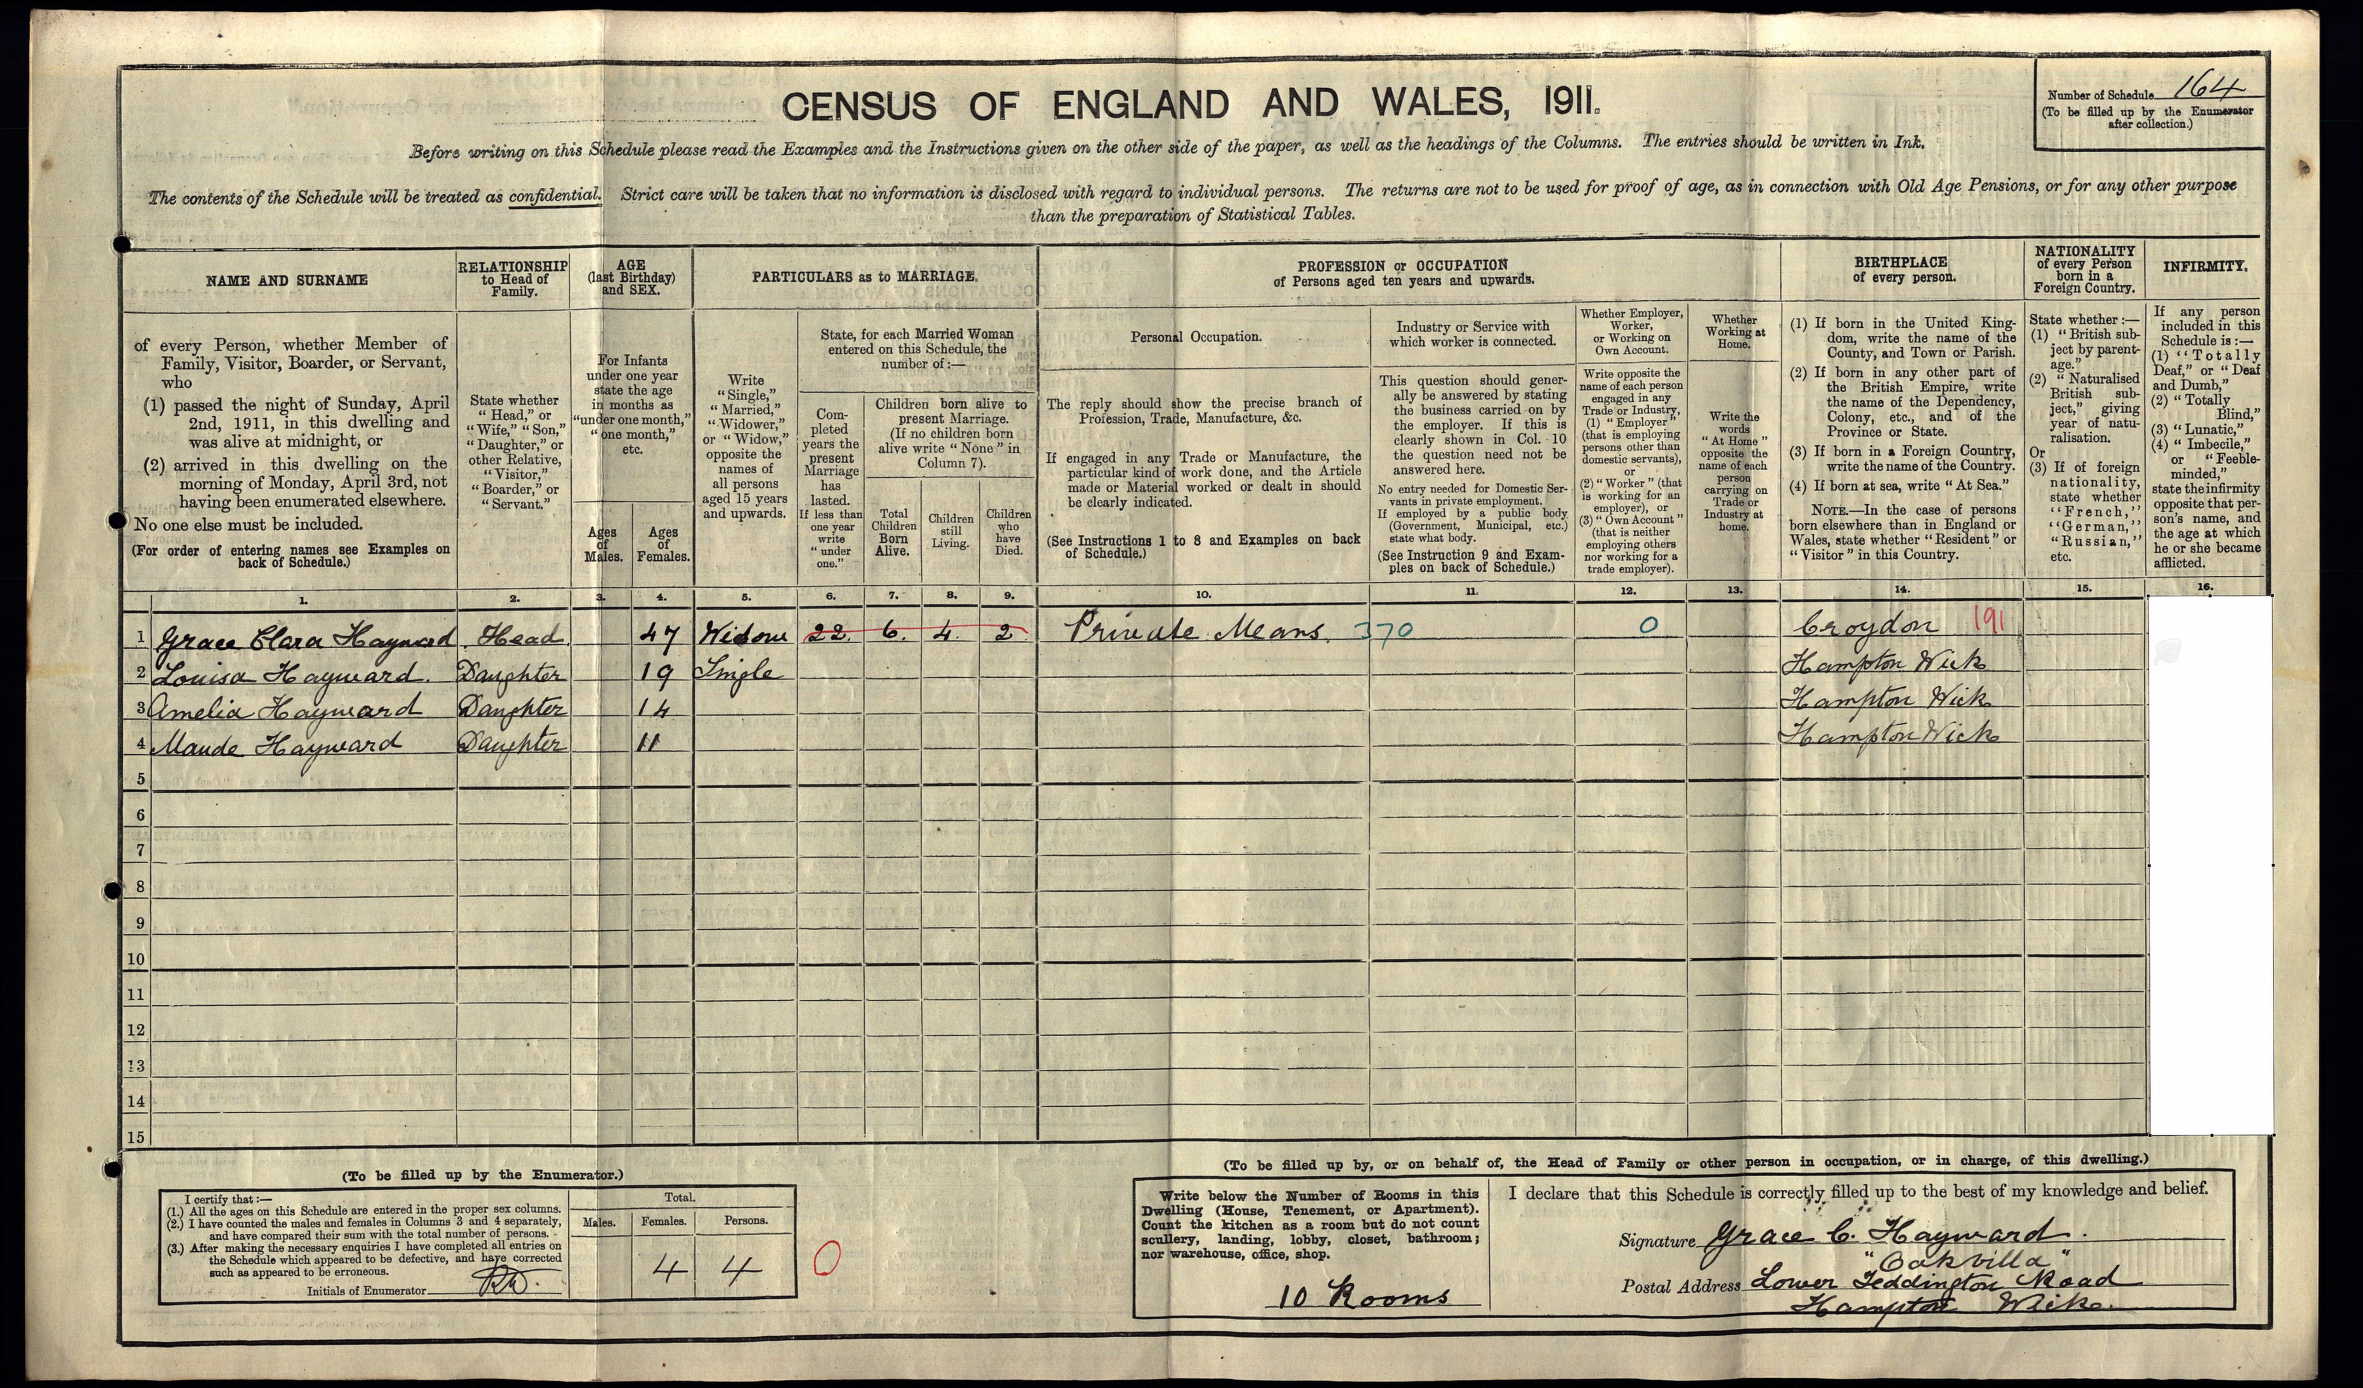 CENSUS OF ENGLAND AND WALES, 1911.
Number of Schedule 164
(To be filled up by the Enumerator
after collection.)
Before writing on this Schedule please read the Examples and the Instructions given on the other side of the paper, as well as the headings of the Columns. The entries should be written in Ink.
The contents of the Schedule will be treated as confidential. Strict care will be taken that no information is disclosed with regard to individual persons. The returns are not to be used for proof of age, as in connection with Old Age Pensions, or for any other purpose
than the preparation of Statistical Tables.
NAME AND SURNAME
of every Person, whether Member of
Family, Visitor, Boarder, or Servant,
who
(1) passed the night of Sunday, April
2nd, 1911, in this dwelling and
was alive at midnight, or
(2) arrived in this dwelling on the
morning of Monday, April 3rd, not
having been enumerated elsewhere.
No one else must be included.
(For order of entering names see Examples on
back of Schedule.)
RELATIONSHIP
to Head of
Family.
State whether
"Head," or
"Wife," "Son,"
"Daughter," or
other Relative,
"Visitor,"
"Boarder," or
"Servant."
AGE
(last Birthday)
and SEX.
For Infants
under one year
state the age
in months as
"under one month,"
"one month,"
etc.
Ages
of
Males.
Ages
of
Females.
PARTICULARS as to MARRIAGE.
Write
"Single,"
"Married,"
"Widower,"
or "Widow,"
opposite the
names of
all persons
aged 15 years
and upwards.
State, for each Married Woman
entered on this Schedule, the
number of :—
Com-
pleted
years the
present
Marriage
has
lasted.
If less than
one year
write
"under
one."
Children born alive to
present Marriage.
(If no children born
alive write "None" in
Column 7).
Total
Children
Born
Alive.
Children
still
Living.
Children
who
have
Died.
PROFESSION or OCCUPATION
of Persons aged ten years and upwards.
Personal Occupation.
The reply should show the precise branch of
Profession, Trade, Manufacture, &c.
If engaged in any Trade or Manufacture, the
particular kind of work done, and the Article
made or Material worked or dealt in should
be clearly indicated.
(See Instructions 1 to 8 and Examples on back
of Schedule.)
Industry or Service with
which worker is connected.
This question should gener-
ally be answered by stating
the business carried on by
the employer. If this is
clearly shown in Col. 10
the question need not be
answered here.
No entry needed for Domestic Ser-
vants in private employment.
If employed by a public body
(Government, Municipal, etc.)
state what body.
(See Instruction 9 and Exam-
ples on back of Schedule.)
Whether Employer,
Worker,
or Working on
Own Account.
Write opposite the
name of each person
engaged in any
Trade or Industry,
(1) "Employer"
(that is employing
persons other than
domestic servants),
or
(2) "Worker" (that
is working for an
employer), or
(3) "Own Account"
(that is neither
employing others
nor working for a
trade employer).
Whether
Working at
Home.
Write the
words
"At Home"
opposite the
name of each
person
carrying on
Trade or
Industry at
home.
BIRTHPLACE
of every person.
(1) If born in the United King-
dom, write the name of the
County, and Town or Parish.
(2) If born in any other part of
the British Empire, write
the name of the Dependency,
Colony, etc., and of the
Province or State.
(3) If born in a Foreign Country,
write the name of the Country.
(4) If born at sea, write "At Sea."
NOTE.—In the case of persons
born elsewhere than in England or
Wales, state whether "Resident" or
"Visitor" in this Country.
NATIONALITY
of every Person
born in a
Foreign Country.
State whether :—
(1) "British sub-
ject by parent-
age."
(2) "Naturalised
British sub-
ject," giving
year of natu-
ralisation.
Or
(3) If of foreign
nationality,
state whether
"French,"
"German,"
"Russian,"
etc.
INFIRMITY.
If any person
included in this
Schedule is :—
(1) "Totally
Deaf," or "Deaf
and Dumb,"
(2) "Totally
Blind,"
(3) "Lunatic,"
(4) "Imbecile,"
or "Feeble-
minded,"
state the infirmity
opposite that per-
son's name, and
the age at which
he or she became
afflicted.
1. 2. 3. 4. 5. 6. 7. 8. 9. 10. 11. 12. 13. 14. 15. 16.
1 Grace Clara Hayward Head 47 Widow 22. 6. 4. 2 Private Means. 370 0 Croydon 191
2 Louisa Hayward. Daughter 19 Single Hampton Wick
3 Amelia Hayward Daughter 14 Hampton Wick
4 Maude Hayward Daughter 11 Hampton Wick
5
6
7
8
9
10
11
12
13
14
15
(To be filled up by the Enumerator.)
I certify that :—
(1.) All the ages on this Schedule are entered in the proper sex columns.
(2.) I have counted the males and females in Columns 3 and 4 separately,
and have compared their sum with the total number of persons.
(3.) After making the necessary enquiries I have completed all entries on
the Schedule which appeared to be defective, and have corrected
such as appeared to be erroneous.
Initials of Enumerator
Total.
Males. Females. Persons.
4 4
0
(To be filled up by, or on behalf of, the Head of Family or other person in occupation, or in charge, of this dwelling.)
Write below the Number of Rooms in this
Dwelling (House, Tenement, or Apartment).
Count the kitchen as a room but do not count
scullery, landing, lobby, closet, bathroom;
nor warehouse, office, shop.
10 Rooms
I declare that this Schedule is correctly filled up to the best of my knowledge and belief.
Signature Grace C. Hayward.
"Oakvilla"
Postal Address Lower Teddington Road
Hampton Wick.